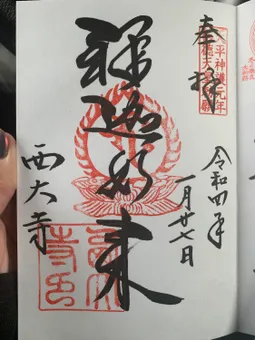 奉拝
天平神護元年
令和四年
一月廿七日
釋迦如来
西大寺